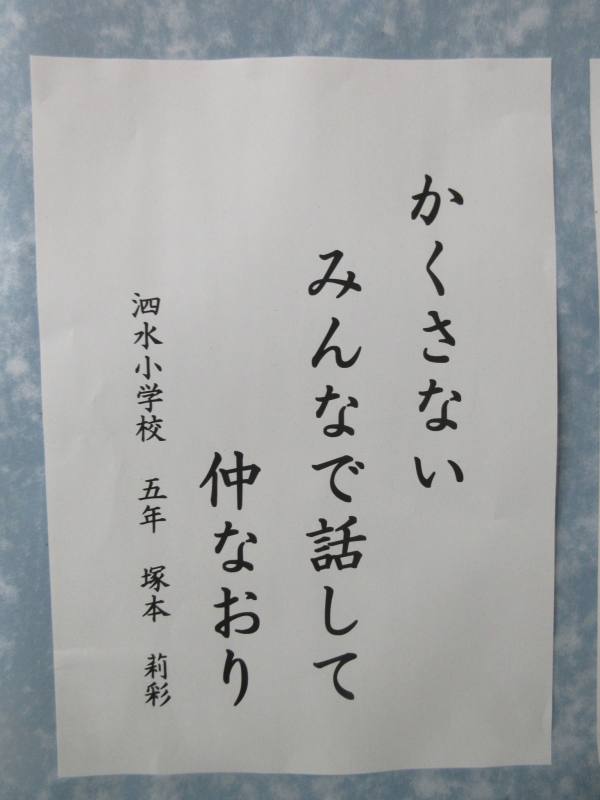 かくさない
みんなで話して
仲なおり
泗水小学校 五年 塚本 莉彩